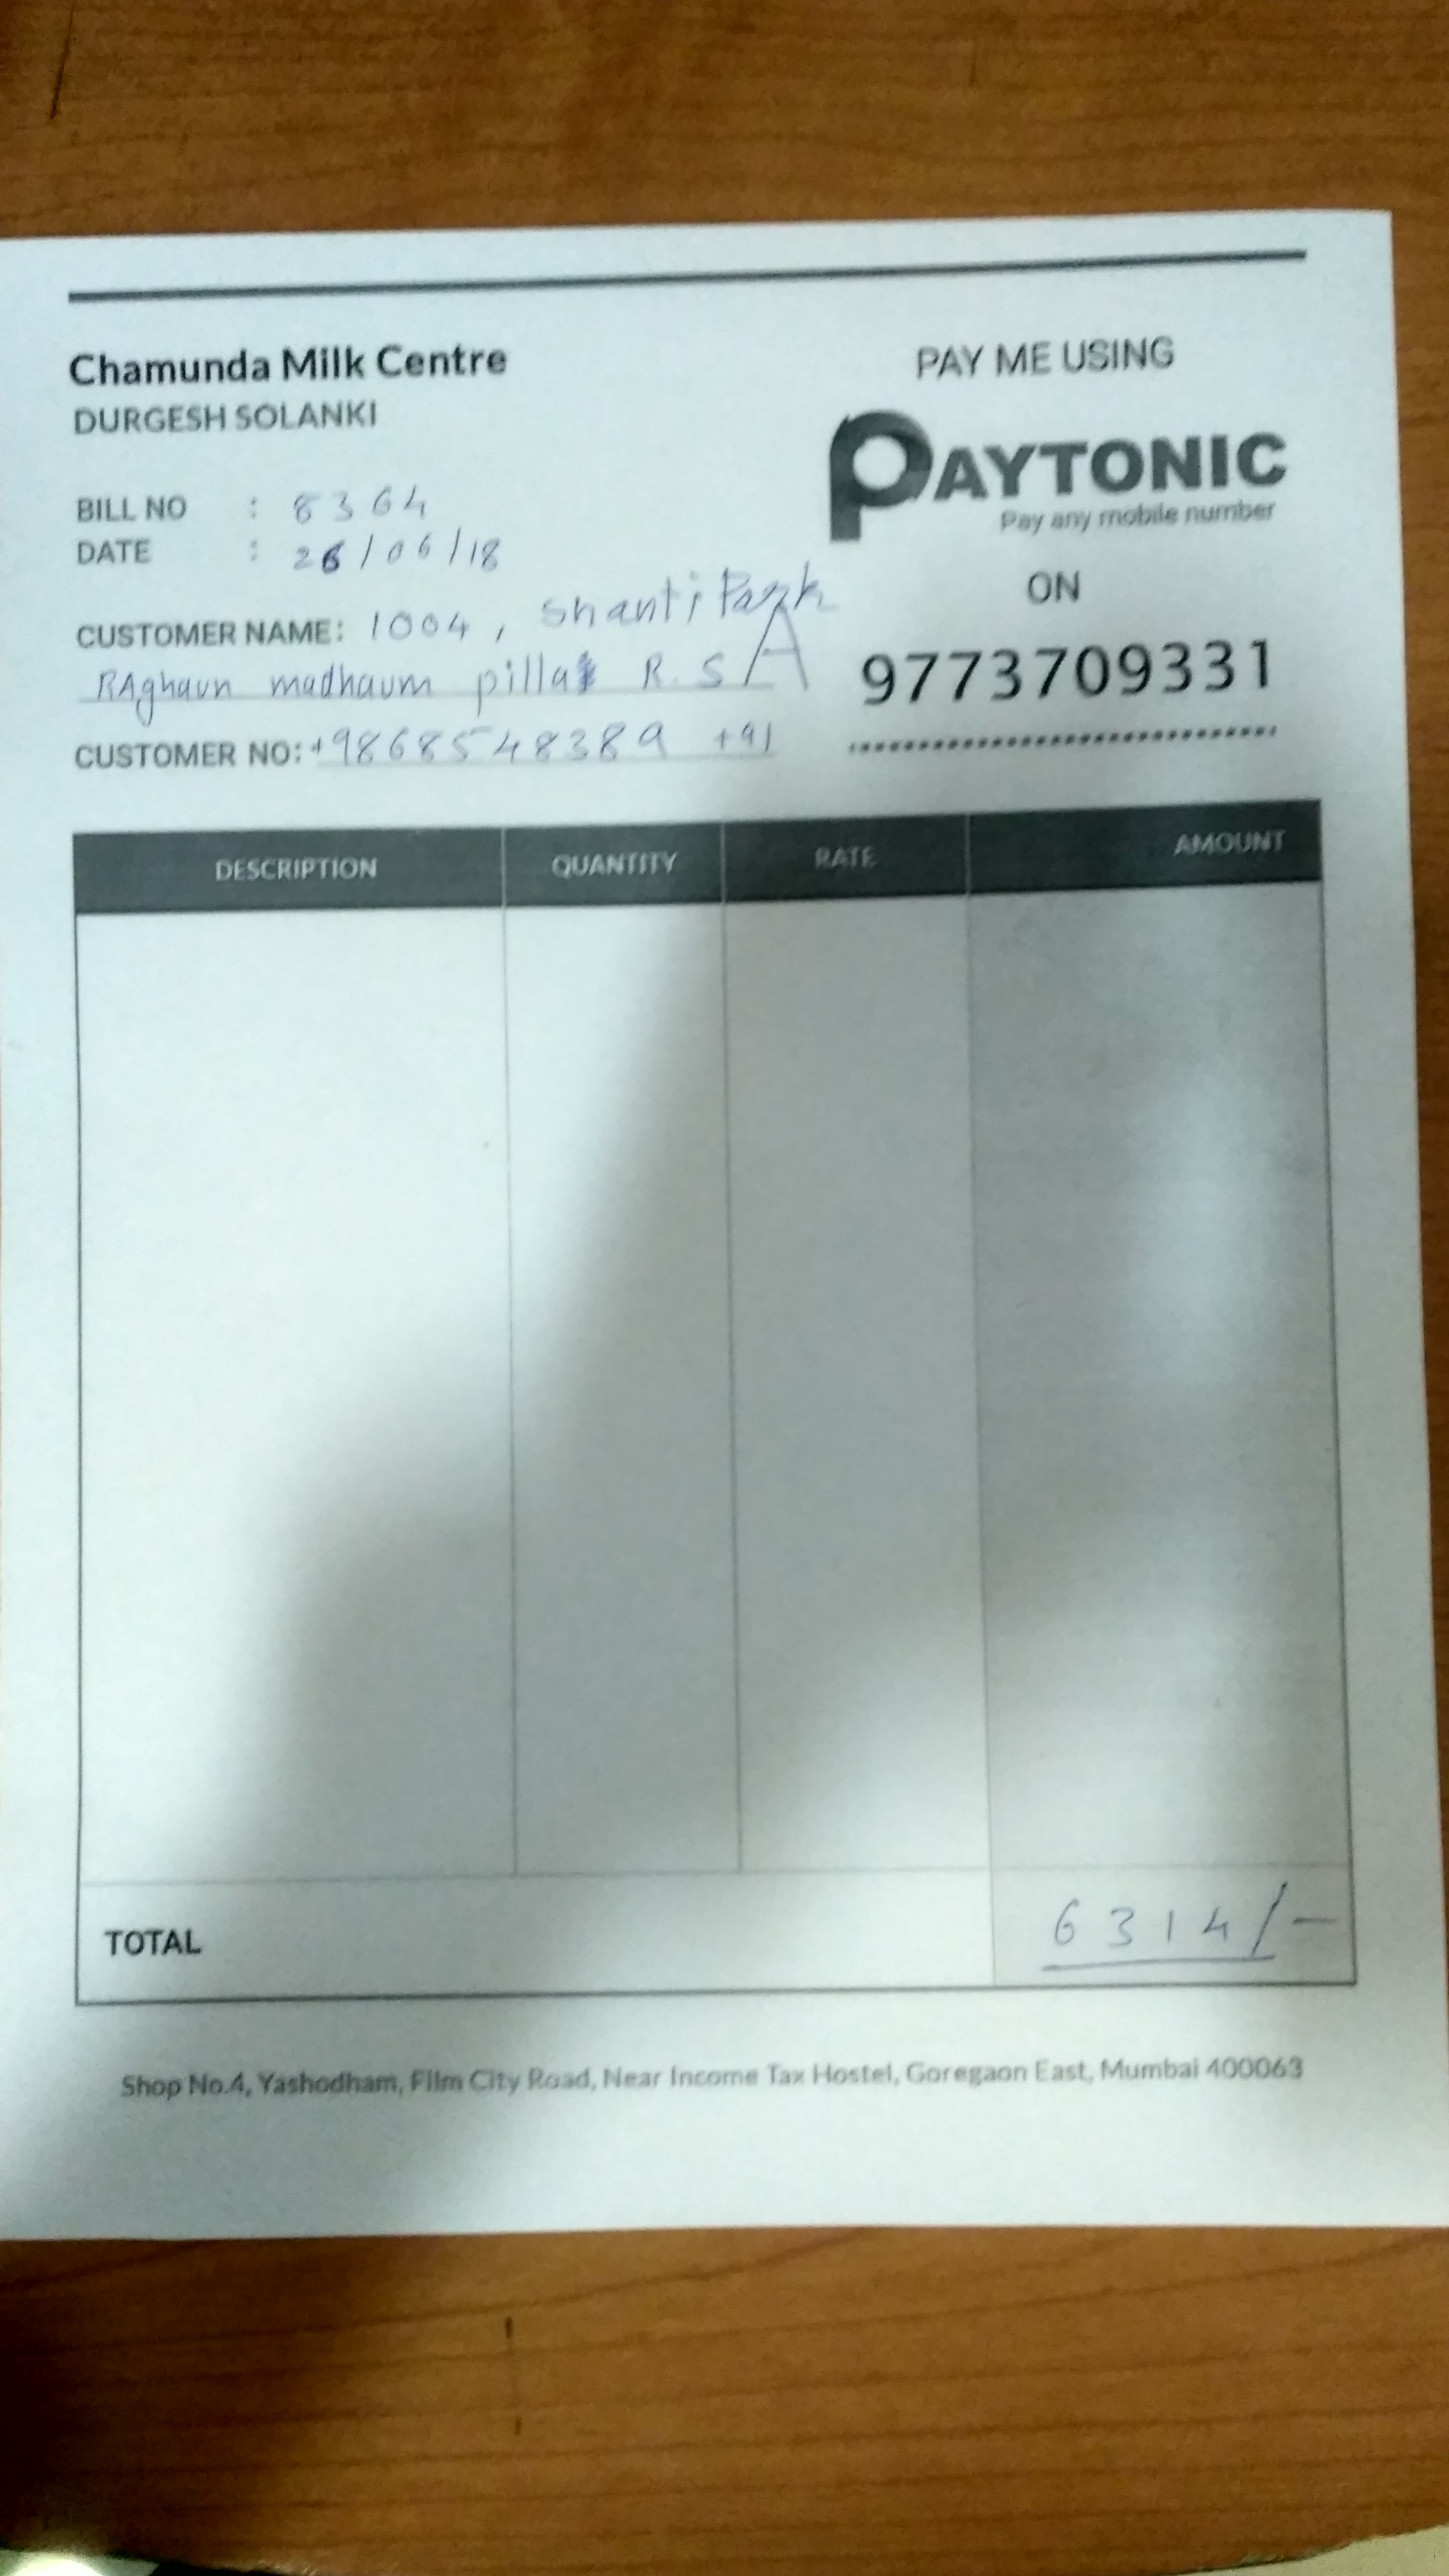 Chamunda Milk Centre
DURGESH SOLANKI
BILL NO : 8364
DATE : 26/06/18
CUSTOMER NAME: 1004, Shanti Park
RAghaun madhaum pillai R.S A
CUSTOMER NO: +9868548389 +91
PAY ME USING
PAYTONIC
Pay any mobile number
ON
9773709331
DESCRIPTION QUANTITY RATE AMOUNT
TOTAL 6314/-
Shop No.4, Yashodham, Film City Road, Near Income Tax Hostel, Goregaon East, Mumbai 400063